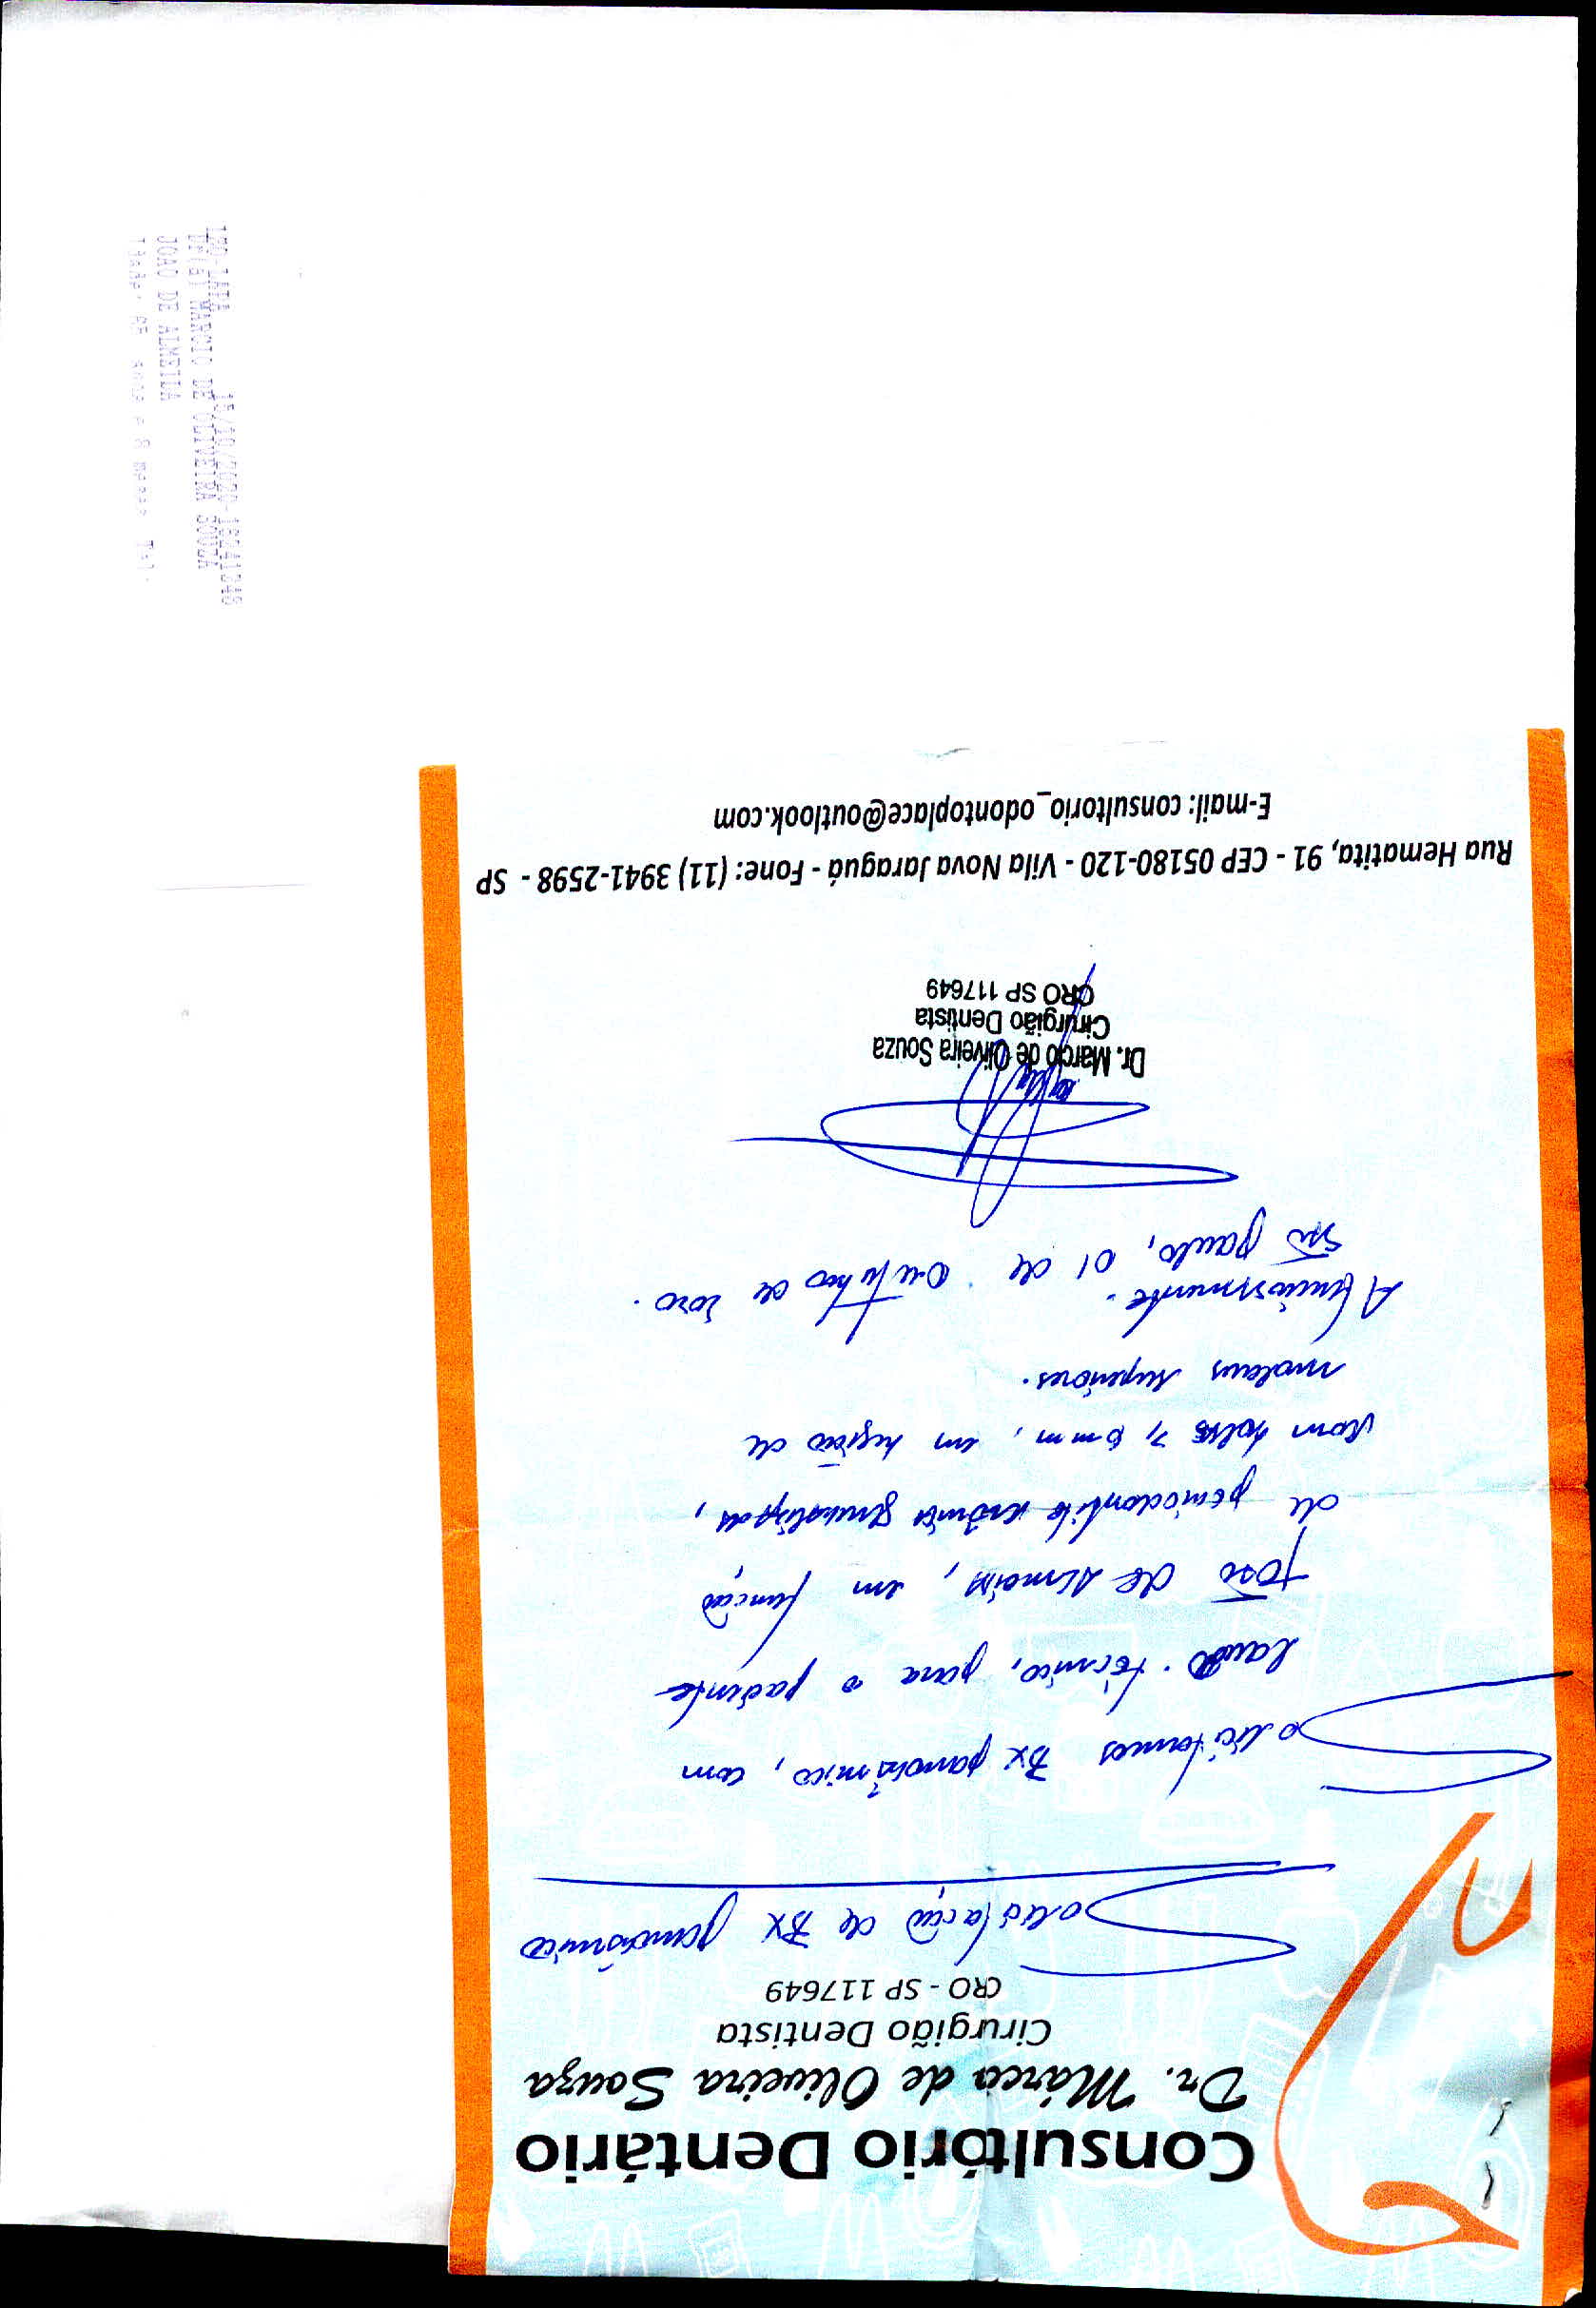 Consultório Dentário
Dr. Márcio de Oliveira Souza
Cirurgião Dentista
CRO - SP 117649
Solicitação de RX panorâmico
Solicitamos RX panorâmico, com
laudo técnico, para o paciente
João de Almeida, em função
de periodontite crônica generalizada,
com bolsa 7, 0 mm, em região de
molares superiores.
Atenciosamente.
São Paulo, 01 de outubro de 2020.
Dr. Marcio de Oliveira Souza
Cirurgião Dentista
CRO SP 117649
Rua Hematita, 91 - CEP 05180-120 - Vila Nova Jaraguá - Fone: (11) 3941-2598 - SP
E-mail: consultorio_odontoplace@outlook.com
MARCIO DE OLIVEIRA SOUZA
JOAO DE ALMEIDA